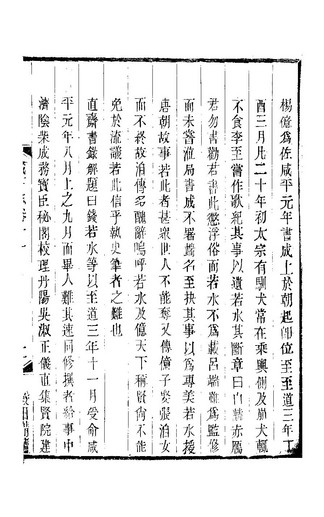 楊億爲佐咸平元年書成上於朝起即位至至道三年丁
酉三月凡二十年初太宗有馴犬常在乘輿側及崩犬輒
不食李至嘗作歌紀其事以遺若水其斷章曰白麟赤鴈
君勿書勸君書此懲浮俗而若水不爲載呂端雖爲監修
而未嘗涖局書成不署端名至抉其事以爲專美若水援
唐朝故事若此者甚衆世人不能奪又傳億子娶張洎女
而不終故洎傳多醜辭嗚呼若水及億天下稱賢尚不能
免於流議若此信乎執史筆者之難也
直齋書錄解題曰錢若水等以至道三年十一月受命咸
平元年八月上之九月而畢人難其速同修撰者給事中
濟陰柴成務寶臣秘閣校理丹陽吳淑正儀直集賢院建